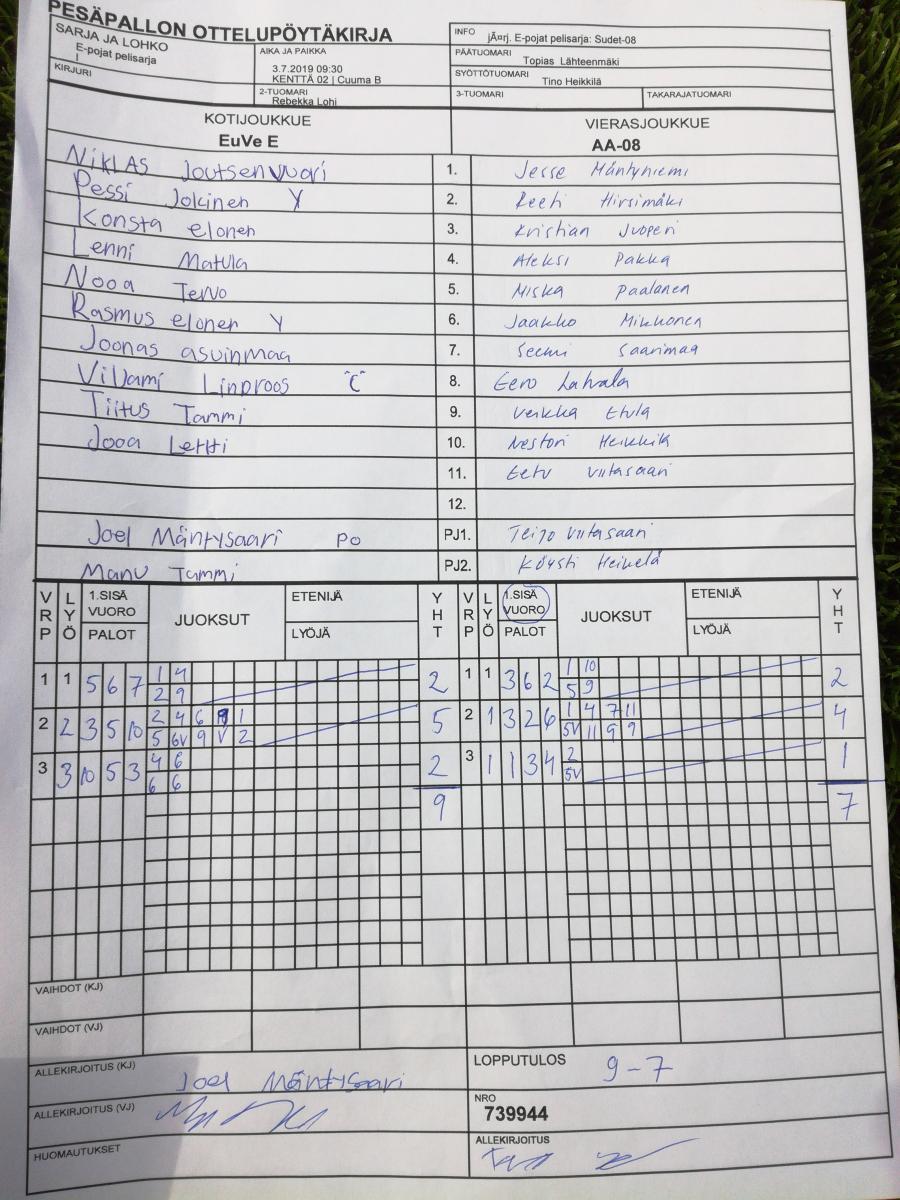 PESÄPALLON OTTELUPÖYTÄKIRJA
SARJA JA LOHKO
E-pojat pelisarja
I
KIRJURI
AIKA JA PAIKKA
3.7.2019 09:30
KENTTÄ 02 | Cuuma B
2-TUOMARI
Rebekka Lohi
INFO jÃ¤rj. E-pojat pelisarja: Sudet-08
PÄÄTUOMARI
Topias Lähteenmäki
SYÖTTÖTUOMARI
Tino Heikkilä
3-TUOMARI TAKARAJATUOMARI
KOTIJOUKKUE VIERASJOUKKUE
EuVe E AA-08
NIKLAS Joutsenvuori 1. Jesse Mäntyniemi
Pessi Jokinen Y 2. Reeti Hirsimäki
Konsta elonen 3. Kristian Juoperi
Lenni Matula 4. Aleksi Pakka
Nooa Tervo 5. Miska Paalanen
Rasmus elonen Y 6. Jaakko Mikkonen
Joonas asuinmaa 7. Seemi Saarimaa
Viljami Lindroos "C" 8. Eero Lahvala
Tiitus Tammi 9. Veikka Etula
Jooa Lehti 10. Nestori Heikkilä
11. Eetu Viitasaari
12.
Joel Mäntysaari PO PJ1. Teijo Viitasaari
Manu Tammi PJ2. Köysti Heikelä
VRP LYÖ 1.SISÄ VUORO PALOT JUOKSUT ETENIJÄ LYÖJÄ YHT VRP LYÖ 1.SISÄ VUORO PALOT JUOKSUT ETENIJÄ LYÖJÄ YHT
1 1 5 6 7 1 4 2 1 1 3 6 2 1 10 2
2 9 5 9
2 2 3 5 10 2 4 6 1 5 2 1 3 2 6 1 4 7 11 4
5 6V 9 V 2 5V 11 9 9
3 3 10 5 3 4 6 2 3 1 1 3 4 2 1
6 6 5V
9 7
VAIHDOT (KJ)
VAIHDOT (VJ)
ALLEKIRJOITUS (KJ) Joel Mäntysaari
LOPPUTULOS 9-7
ALLEKIRJOITUS (VJ)
NRO
739944
HUOMAUTUKSET
ALLEKIRJOITUS